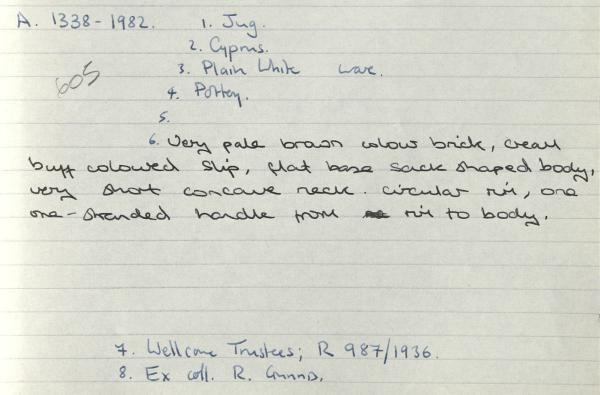 A. 1338-1982. 1. Jug.
2. Cyprus.
605
3. Plain White ware.
4. Pottery.
5.
6. Very pale brown colour brick, cream
buff coloured slip, flat base sack shaped body,
very short concave neck. circular rim, one
one-stranded handle from rim to body.
7. Wellcome Trustees; R 987/1936.
8. Ex coll. R. Gunnis.